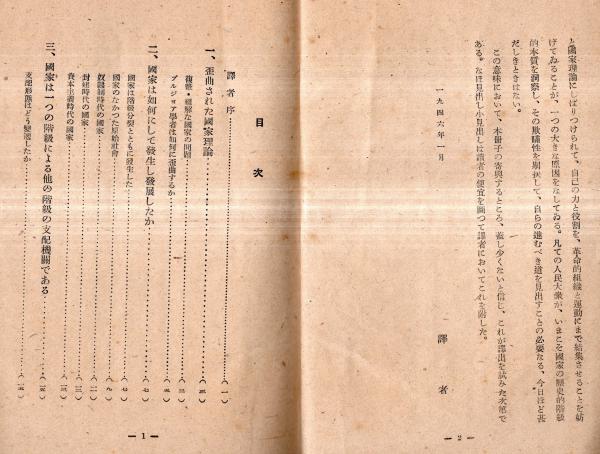 と國家理論にしばりつけられて、自己の力と役割を、革命的組織と運動にまで結集させることを妨
げてゐることが、一つの大きな原因をなしてゐる。凡ての人民大衆が、いまこそ國家の歴史的階級
的本質を洞察し、その欺瞞性を剔抉して、自らの進むべき道を見出すことの必要なる、今日ほど甚
だしきときはない。
この意味において、本冊子の寄與するところ、蓋し少くないと信じ、これが譯出を試みた次第で
ある。なほ見出し小見出しは讀者の便宜を圖つて譯者においてこれを附した。
一九四六年一月
譯者
— 2 —
目次
譯者序………(一)
一、歪曲された國家理論………(三)
複雜・難解な國家の問題………(三)
ブルジョア學者は如何に歪曲するか
二、國家は如何にして發生し發展したか………(七)
國家は階級分裂とともに發生した………(七)
國家のなかつた原始社會………(九)
奴隷制時代の國家
封建時代の國家
資本主義時代の國家
三、國家は一つの階級による他の階級の支配機關である
支配形態はどう變遷したか
— 1 —